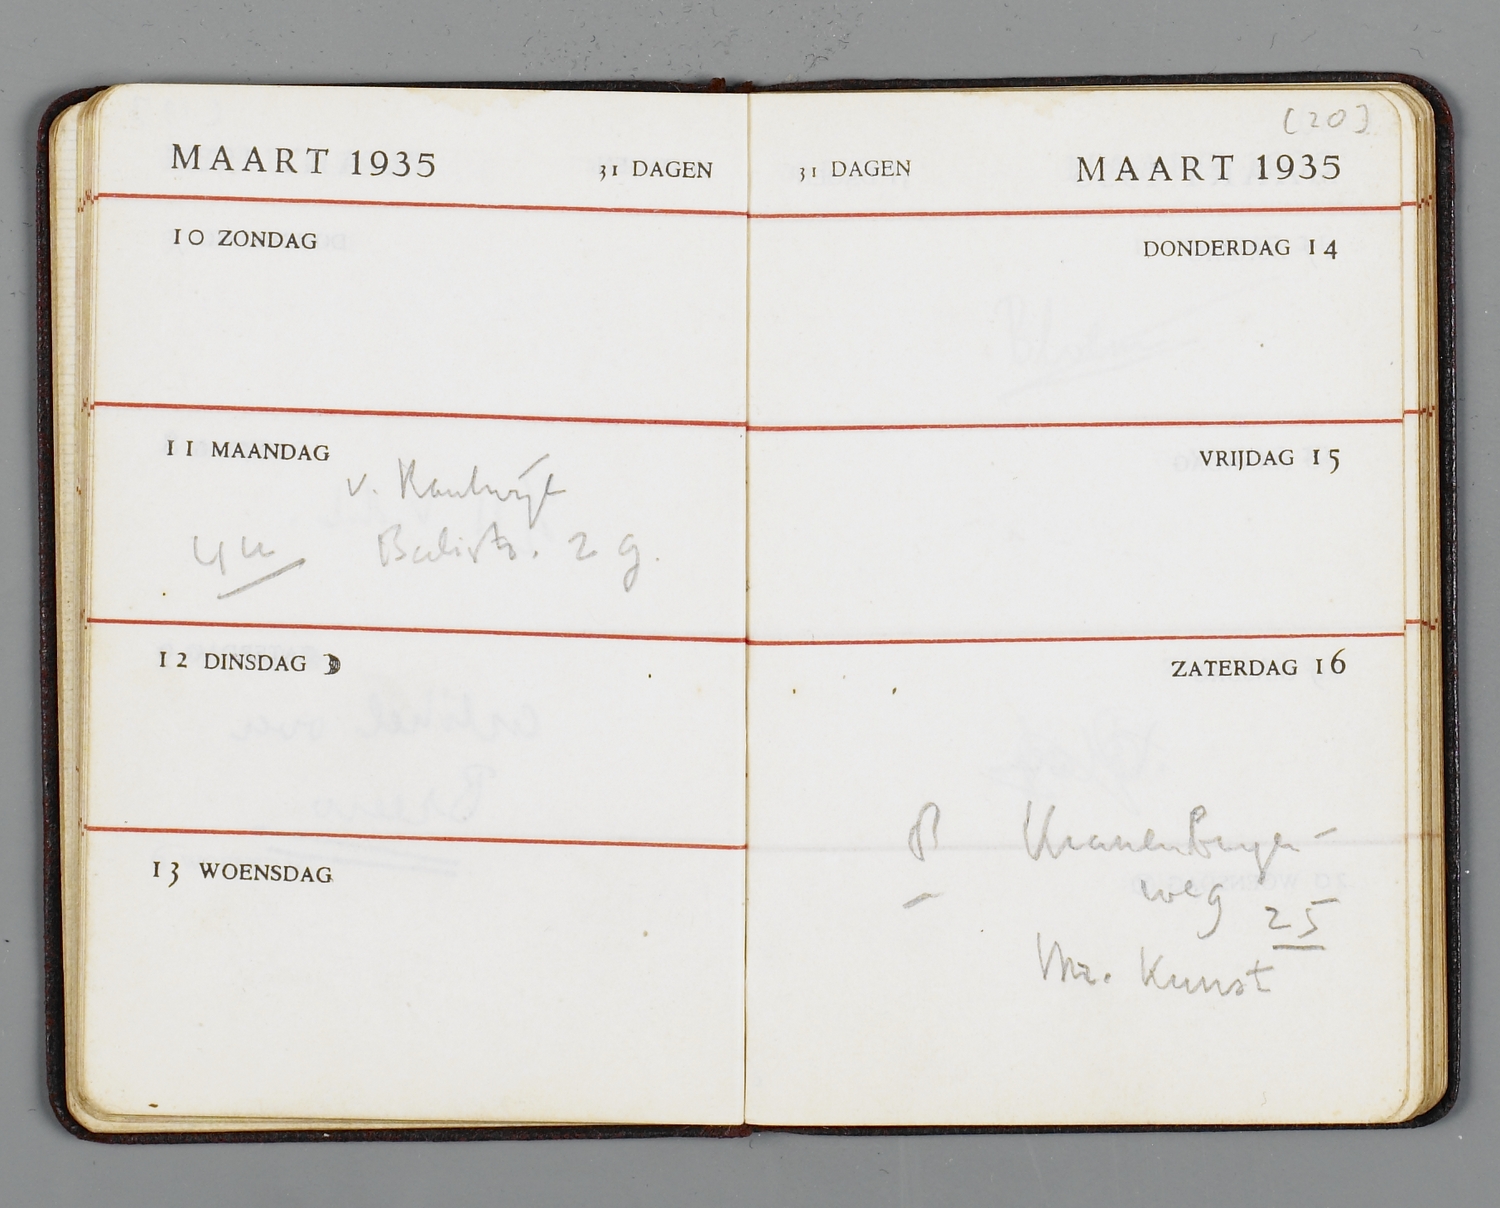 MAART 1935 31 DAGEN
10 ZONDAG
11 MAANDAG
v.
4 u 2 g.
12 DINSDAG
13 WOENSDAG
[20]
31 DAGEN MAART 1935
DONDERDAG 14
VRIJDAG 15
ZATERDAG 16
Kranenburger-
weg 25
Kunst